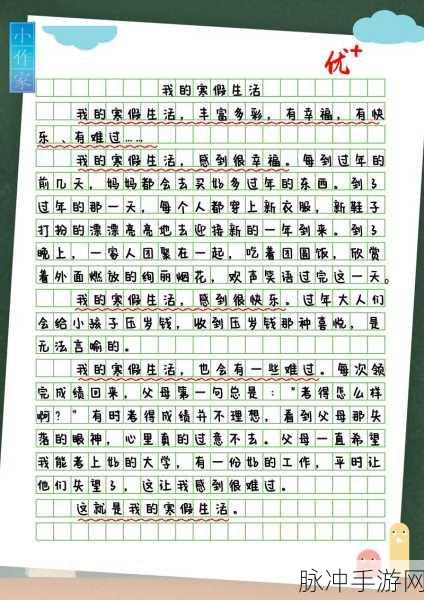 小作家
优+
我的寒假生活
我的寒假生活，丰富多彩，有幸福，有快
乐、有难过……
我的寒假生活，感到很幸福。每到过年的
前几天，妈妈都会去买好多过年的东西。到了
过年的那一天，每个人都穿上新衣服，新鞋子
打扮的漂漂亮亮地去迎接新的一年到来。到了
晚上，一家人团聚在一起，吃着团圆饭，欣赏
着外面燃放的绚丽烟花，欢声笑语过完这一天。
我的寒假生活，感到很快乐。过年大人们
会给小孩子压岁钱，收到压岁钱那种喜悦，是
无法言喻的。
我的寒假生活，也会有一些难过。每次领
完成绩回来，父母第一句总是："考得怎么样
啊？"有时考得成绩并不理想，看到父母那失
落的眼神，心里真的过意不去。父母一直希望
我能考上好的大学，有一份好的工作，平时让
他们失望了，这让我感到很难过。
这就是我的寒假生活。
脉冲手游网